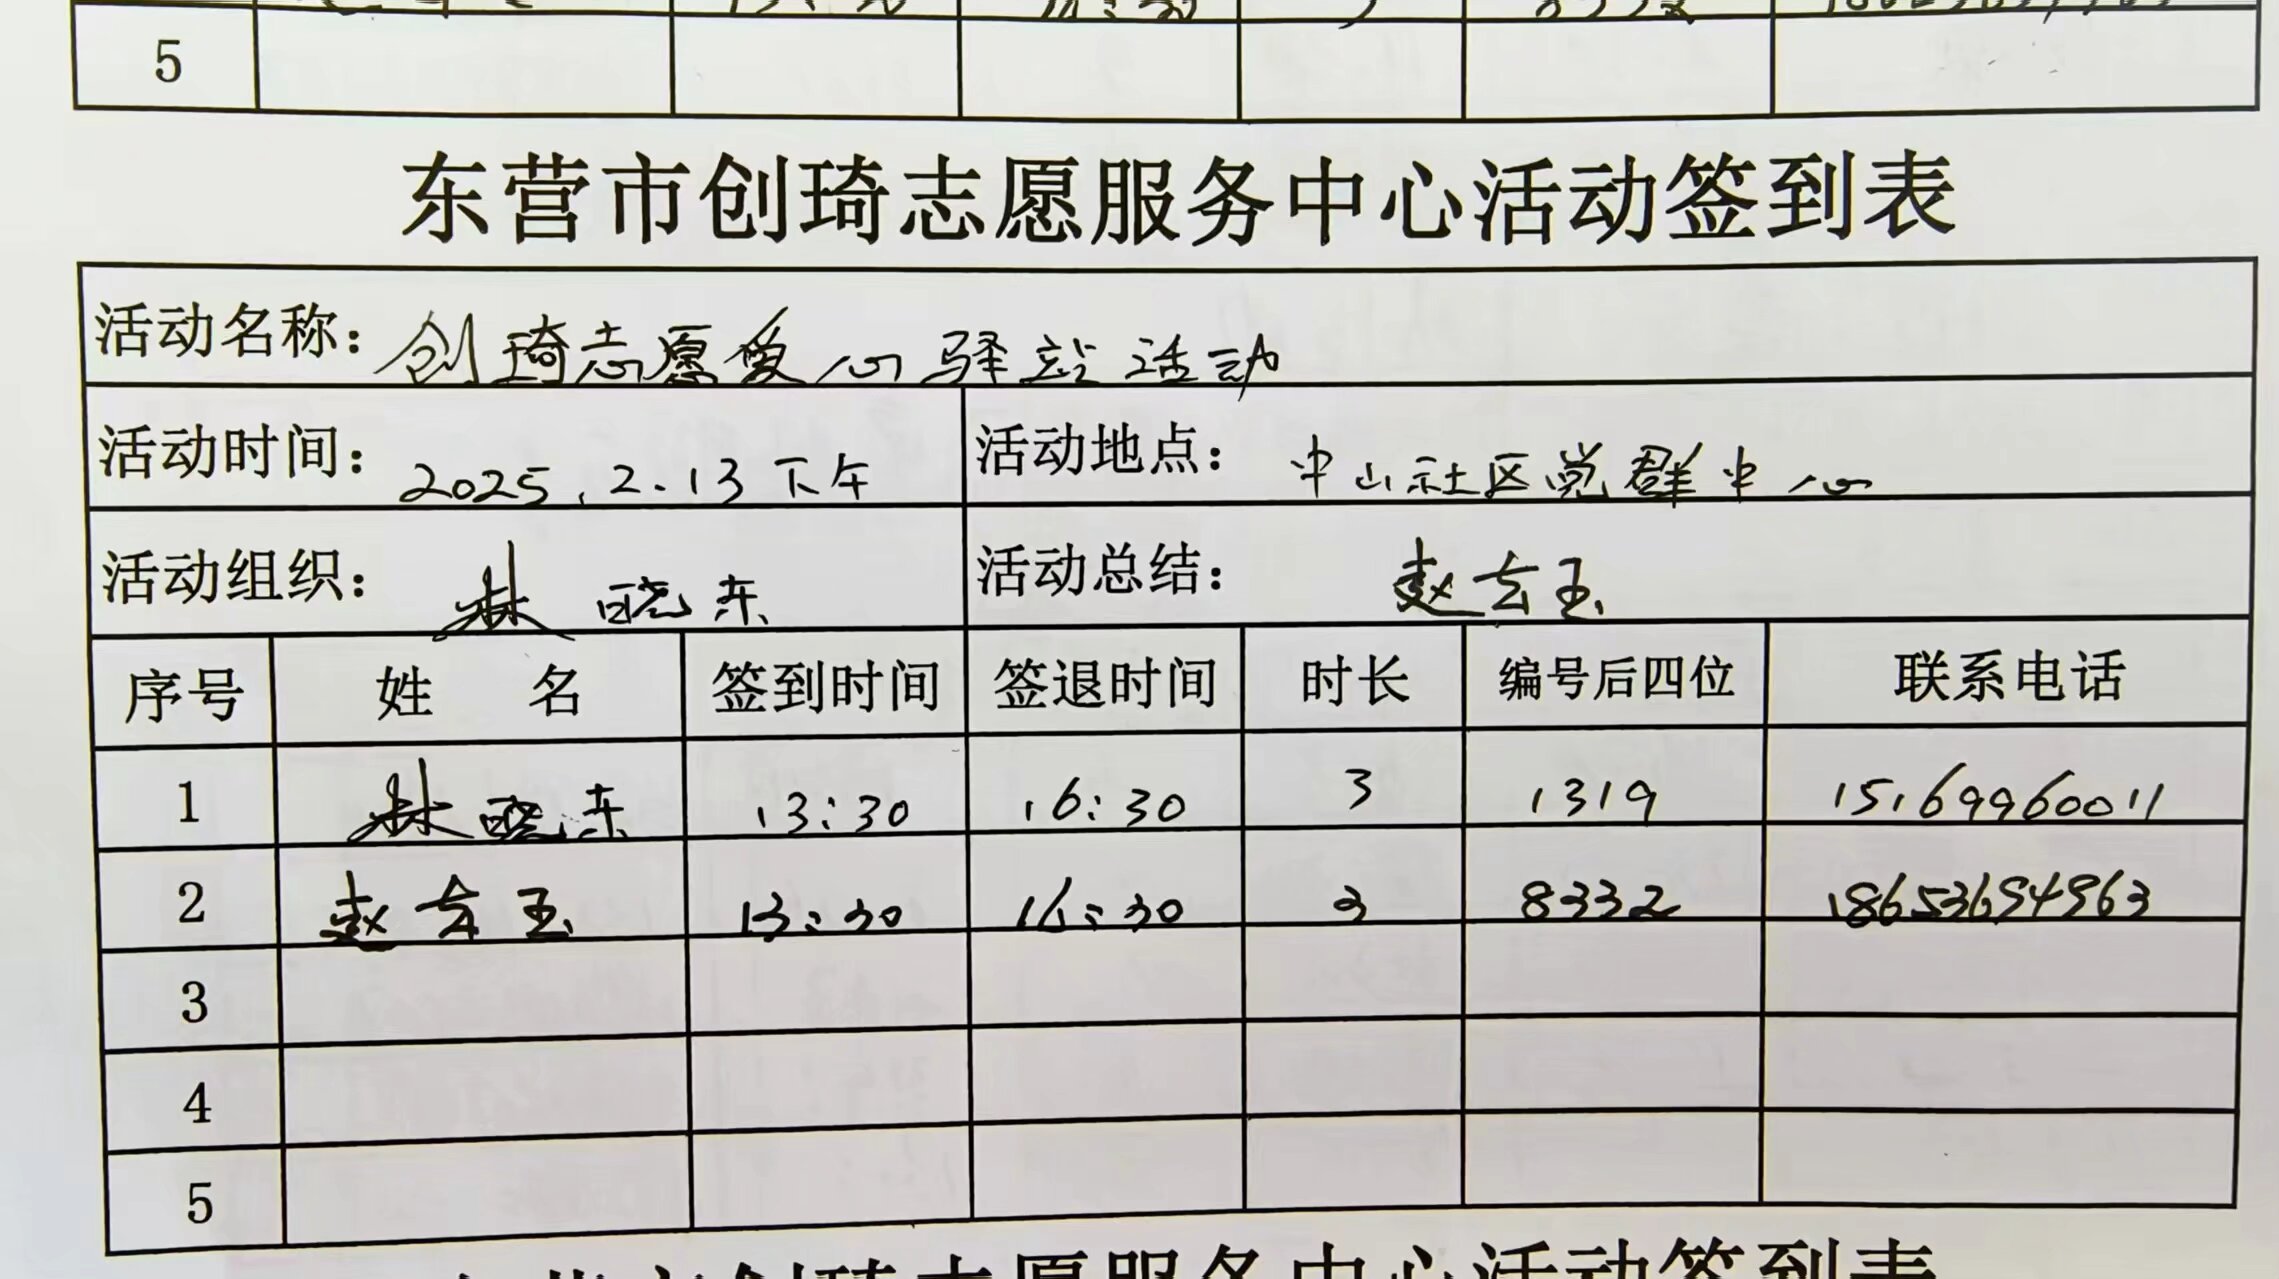 5
东营市创琦志愿服务中心活动签到表
活动名称：创琦志愿爱心驿站活动
活动时间：2025.2.13下午 活动地点：中山社区党群中心
活动组织：林晓东 活动总结：赵玄玉
序号 姓名 签到时间 签退时间 时长 编号后四位 联系电话
1 林晓东 13:30 16:30 3 1319 15169960011
2 赵玄玉 13:30 16:30 3 8332
3
4
5
东营市创琦志愿服务中心活动签到表